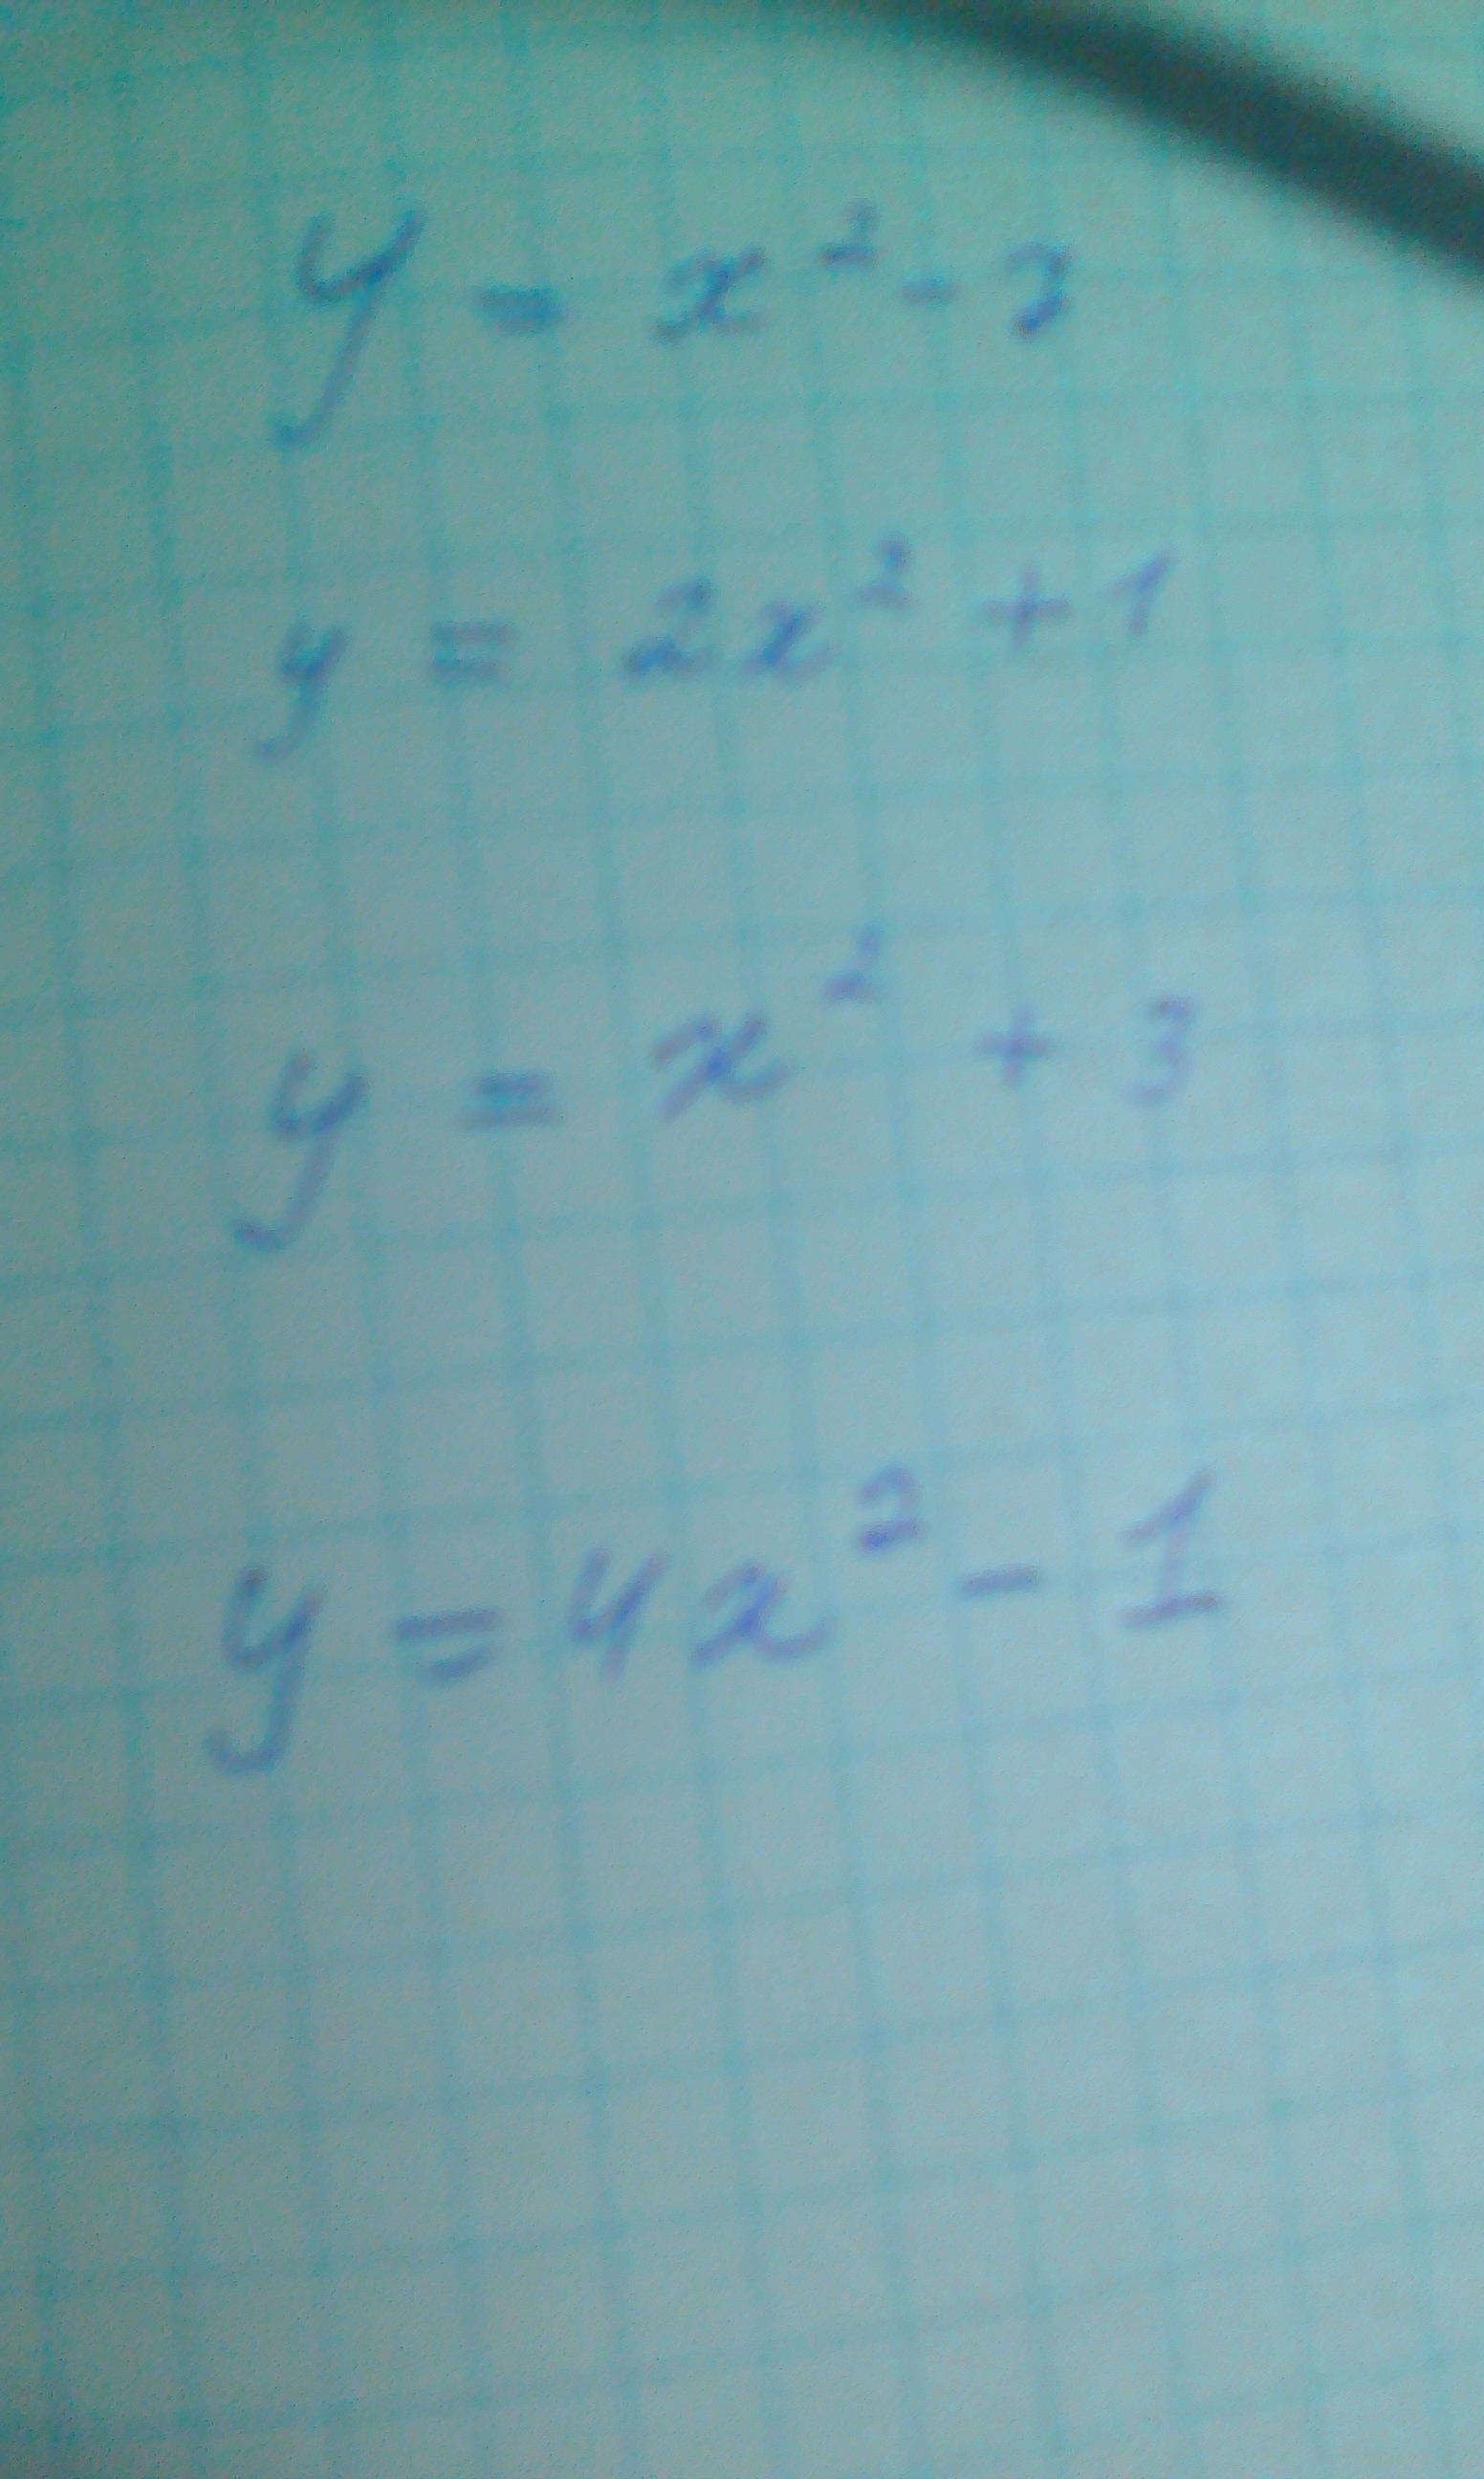 y = x² - 3
y = 2x² + 1
y = x² + 3
y = 4x² - 1